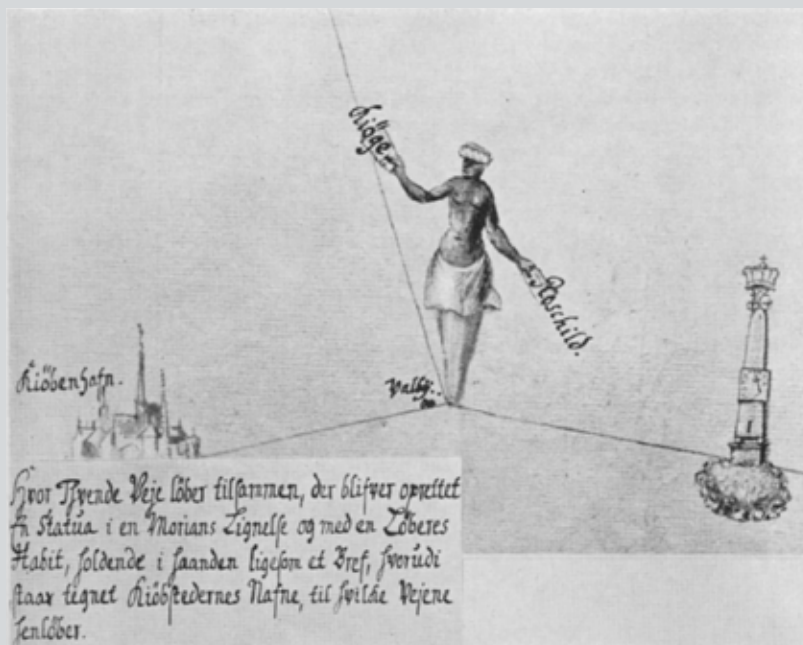 Kiöge.
Roschild.
Kiöbenhafn.
Valbÿ.
Hvor Tvende Veje löber tilsammen, der blifver oprettet
En Statua i en Morians Lignelse og med en Löberes
Habit, holdende i haanden ligesom et Bref, hvorudi
staar tegnet Kiöbstedernes Nafne, til hvilke Vejene
henlöber.